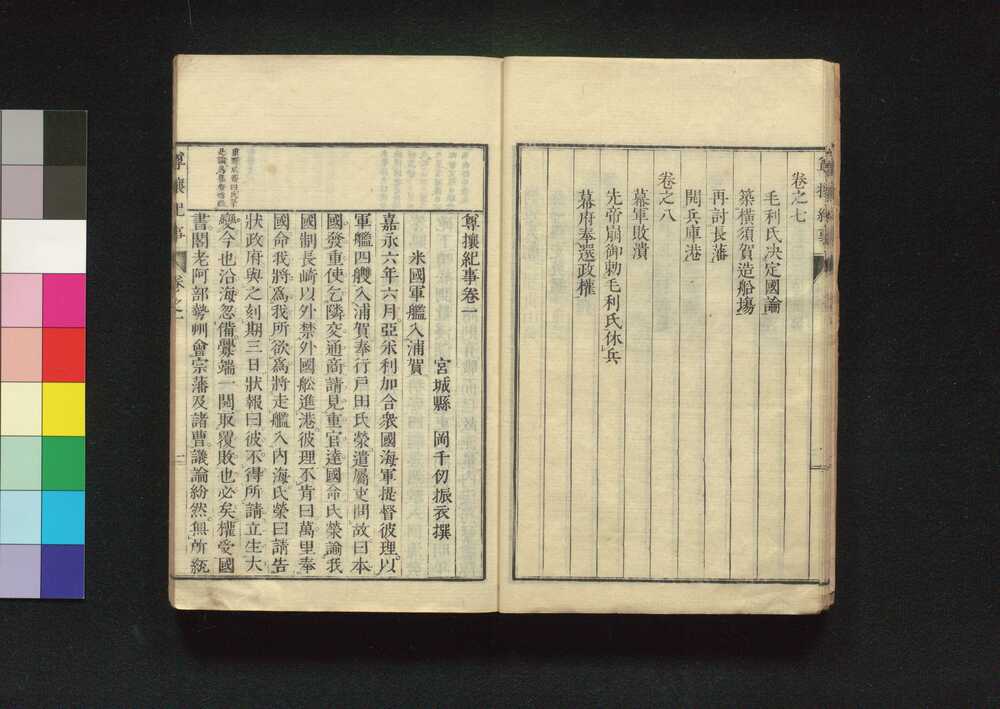 卷之七
毛利氏決定國論
築橫須賀造船塲
再討長藩
開兵庫港
卷之八
幕軍敗潰
先帝崩御勅毛利氏休兵
幕府奉還政權
尊攘紀事卷一
宮城縣 岡千仞振衣撰
米國軍艦入浦賀
嘉永六年六月亞米利加合衆國海軍提督彼理以
軍艦四艘入浦賀奉行戸田氏榮遣屬吏問故曰本
國發重使乞隣交通商請見重官達國命氏榮諭我
國制長崎以外禁外國舩進港彼理不肯曰萬里奉
國命我將爲我所欲爲將走艦入内海氏榮曰請告
狀政府與之刻期三日狀報曰彼不得所請立生大
變今也沿海忽備釁端一開取覆敗也必矣權受國
書閣老阿部勢州會宗藩及諸曹議論紛然無所統
尊攘紀事
卷之一
一